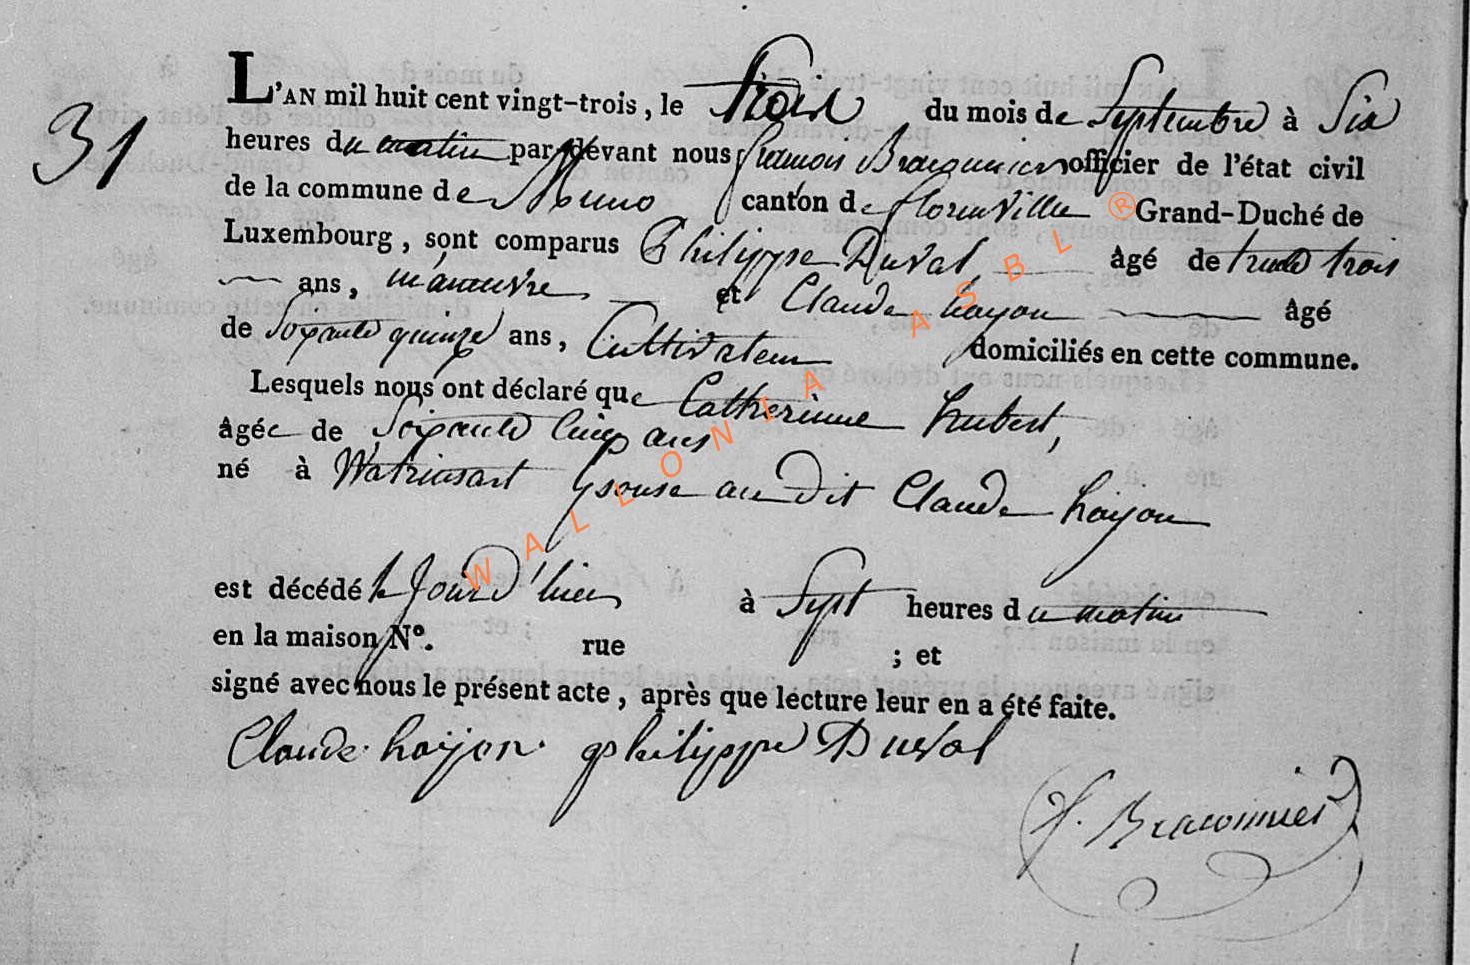 31
L'AN mil huit cent vingt-trois, le trois du mois de Septembre à Six
heures du matin par-devant nous francois Braconnier officier de l'état civil
de la commune de Muno canton de florenville ® Grand-Duché de
Luxembourg, sont comparus Philippe Duval, âgé de trente trois
ans, manœuvre et Claude hayon âgé
de Soixante quinze ans, Cultivateur domiciliés en cette commune.
Lesquels nous ont déclaré que Catherinne hubert,
âgée de Soixante cinq ans
né à Watrinsart Epouse au dit Claude hayon
est décédé le Jour d'hier à Sept heures du matin
en la maison N°. rue ; et
signé avec nous le présent acte, après que lecture leur en a été faite.
Claude hayon philippe Duval
f. Braconnier
WALLONIA ASBL